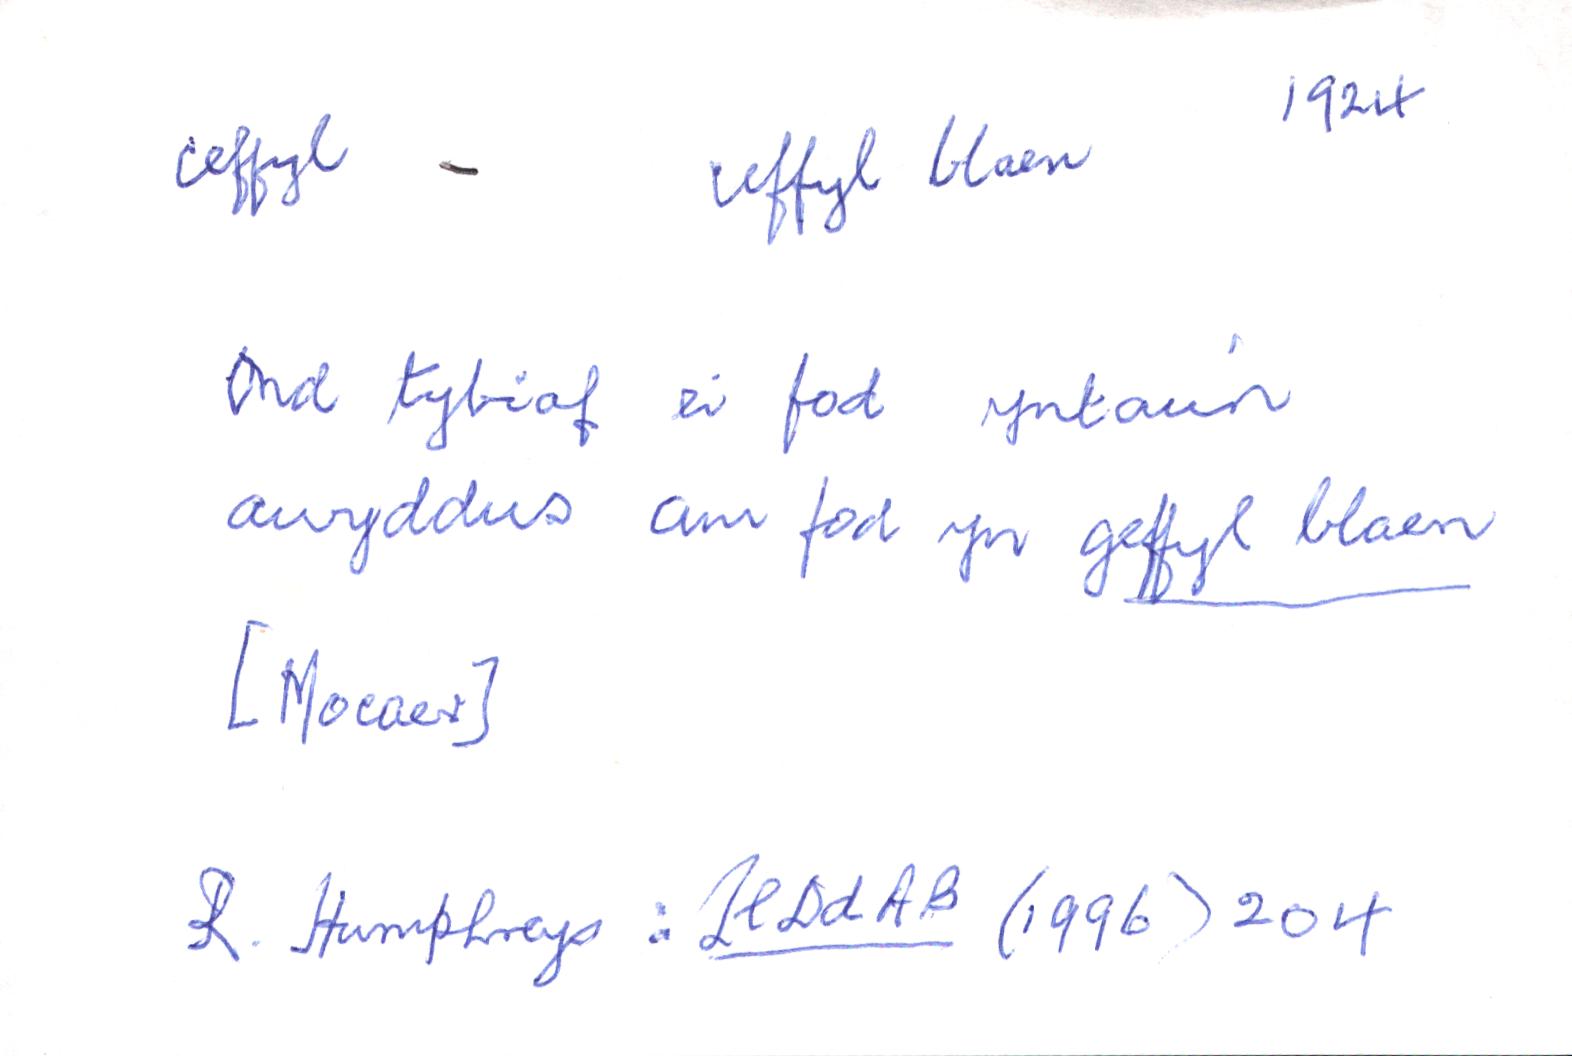 1924
ceffyl - ceffyl blaen
Ond tybiaf ei fod yntau'n
awyddus am fod yn geffyl blaen
[Mocaer]
R. Humphreys : LlDdAB (1996) 204